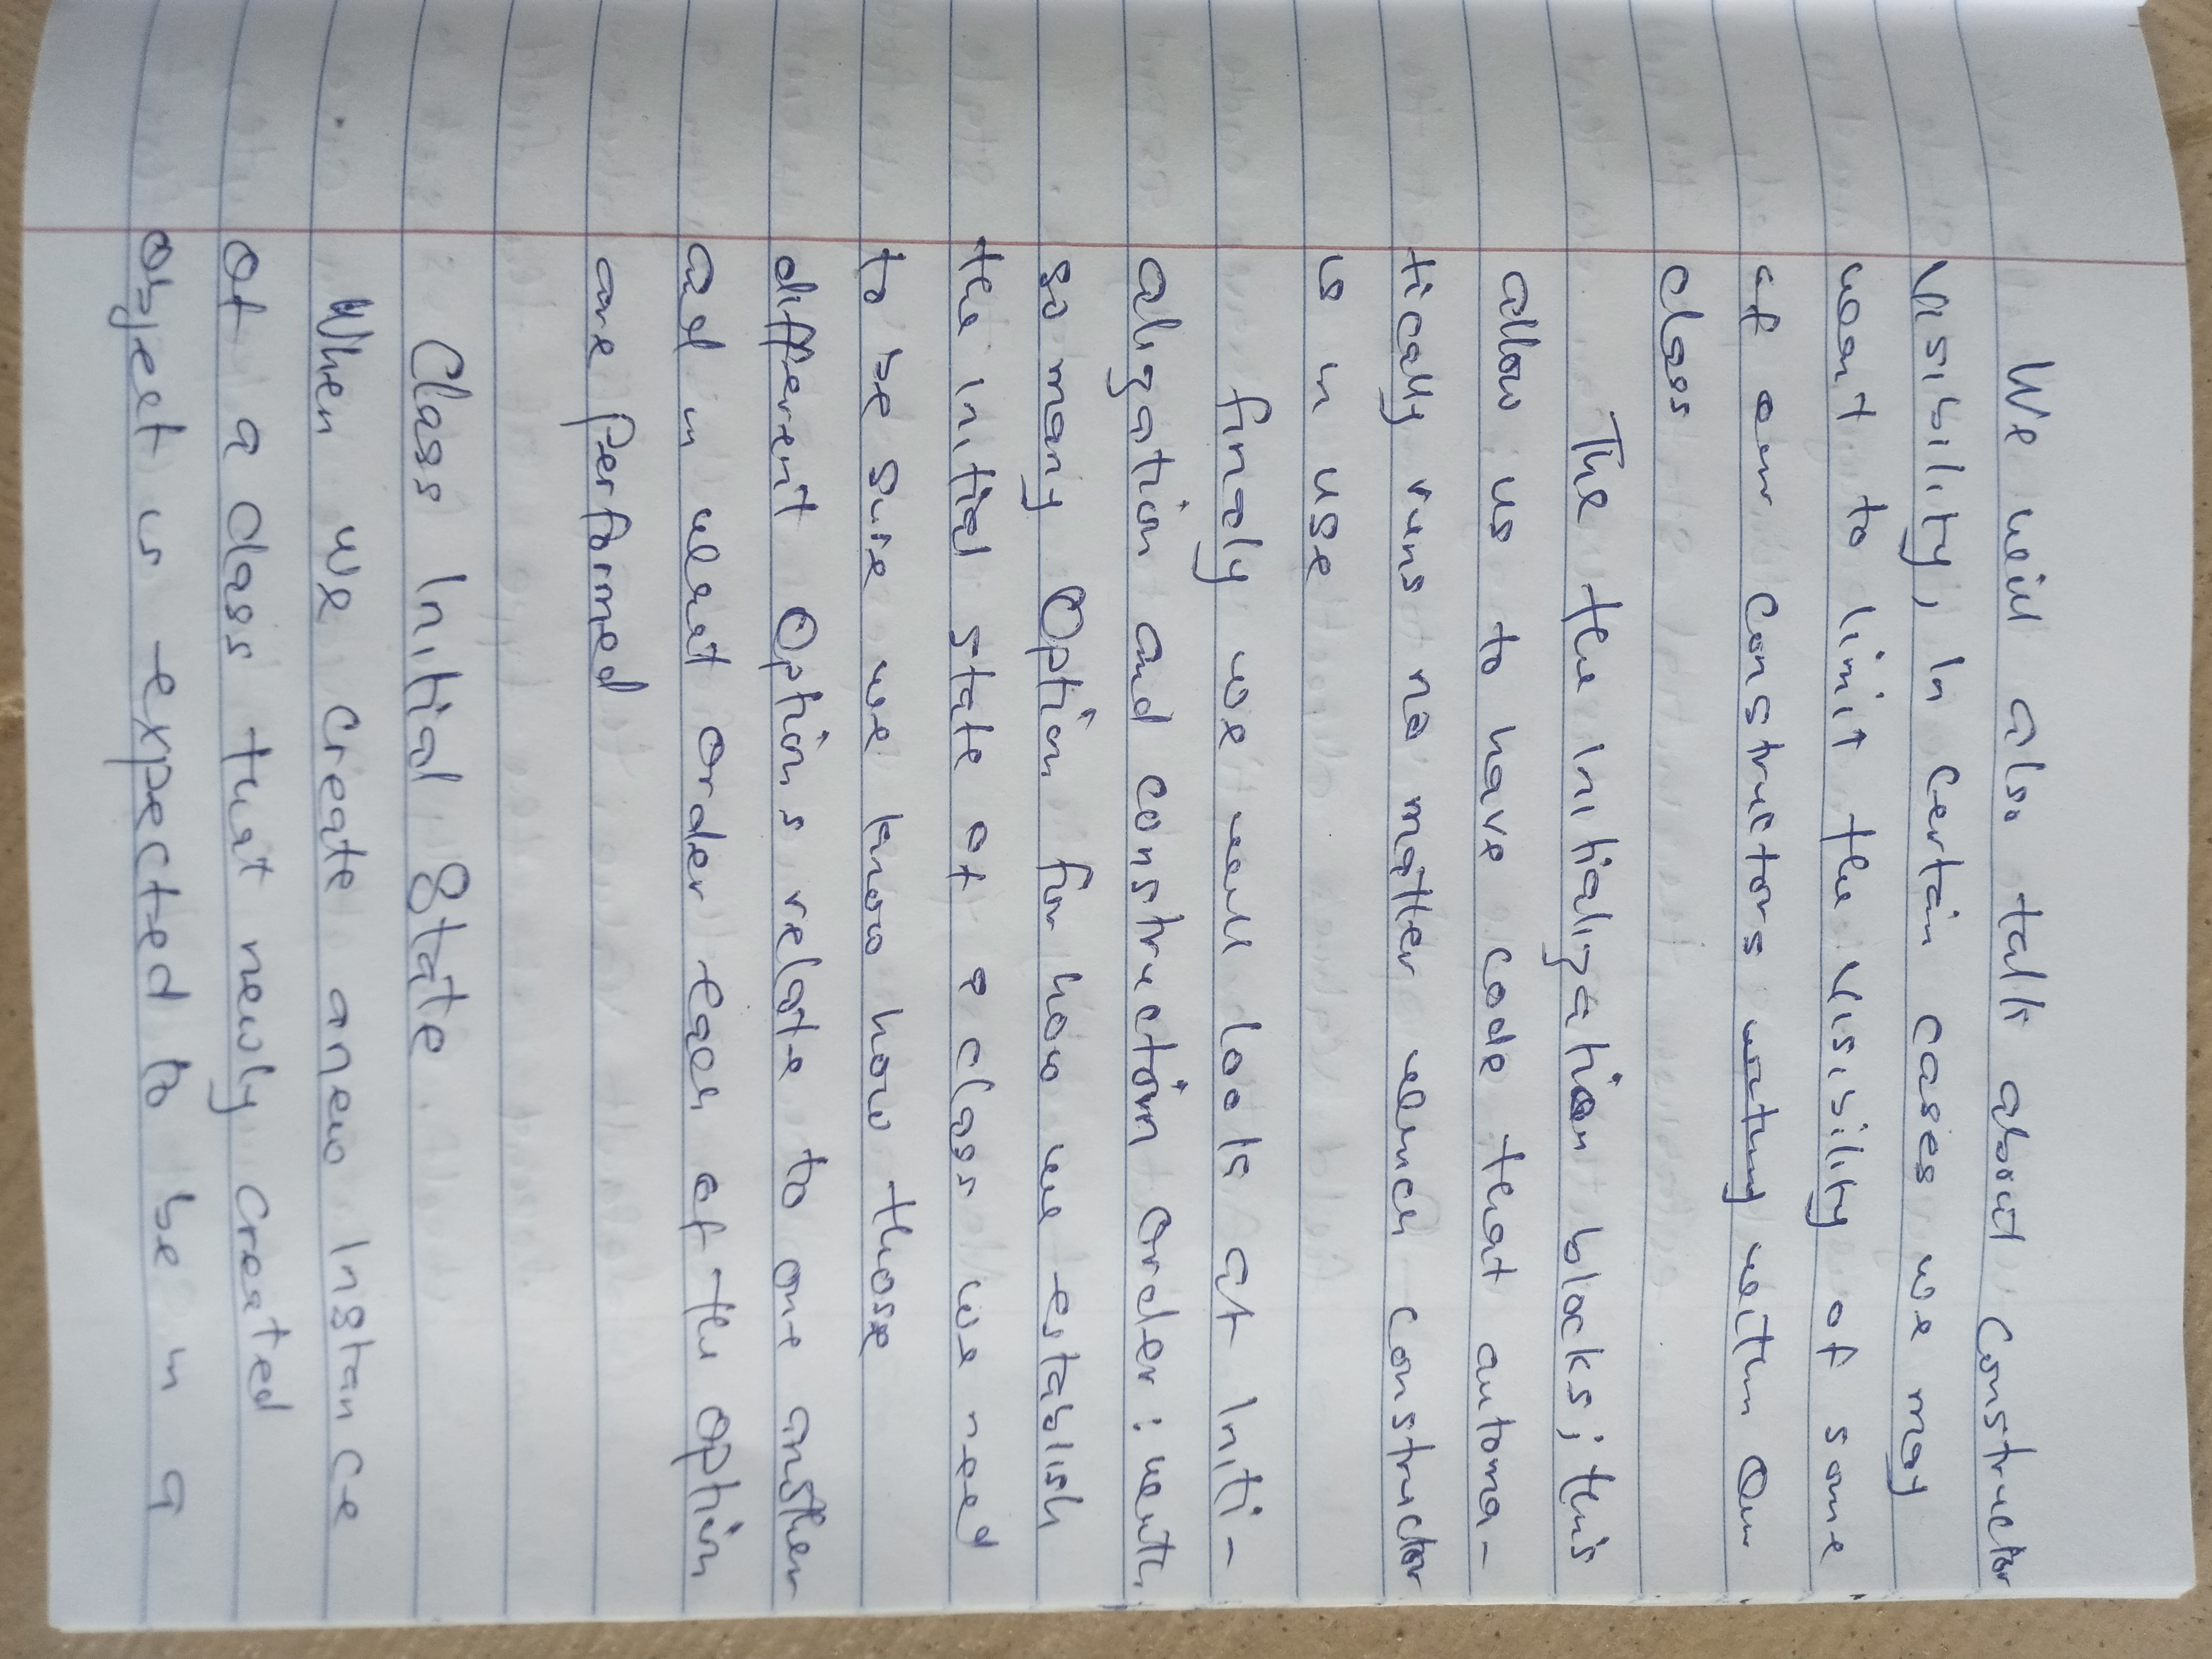 We will also talk about constructor
visibility, in certain cases we may
want to limit the visibility of some
of our constructors within our
class
The the initialization blocks; this
allow us to have code that automa-
tically runs no matter which constructor
is in use
finally we will look at initi-
aligation and construction order: with
so many option for how we establish
the initial state of a class we need
to be sure we know how those
different options relate to one another
and in what order each of the option
are performed
Class Initial State
When we create anew instance
of a class that newly created
object is expected to be in a